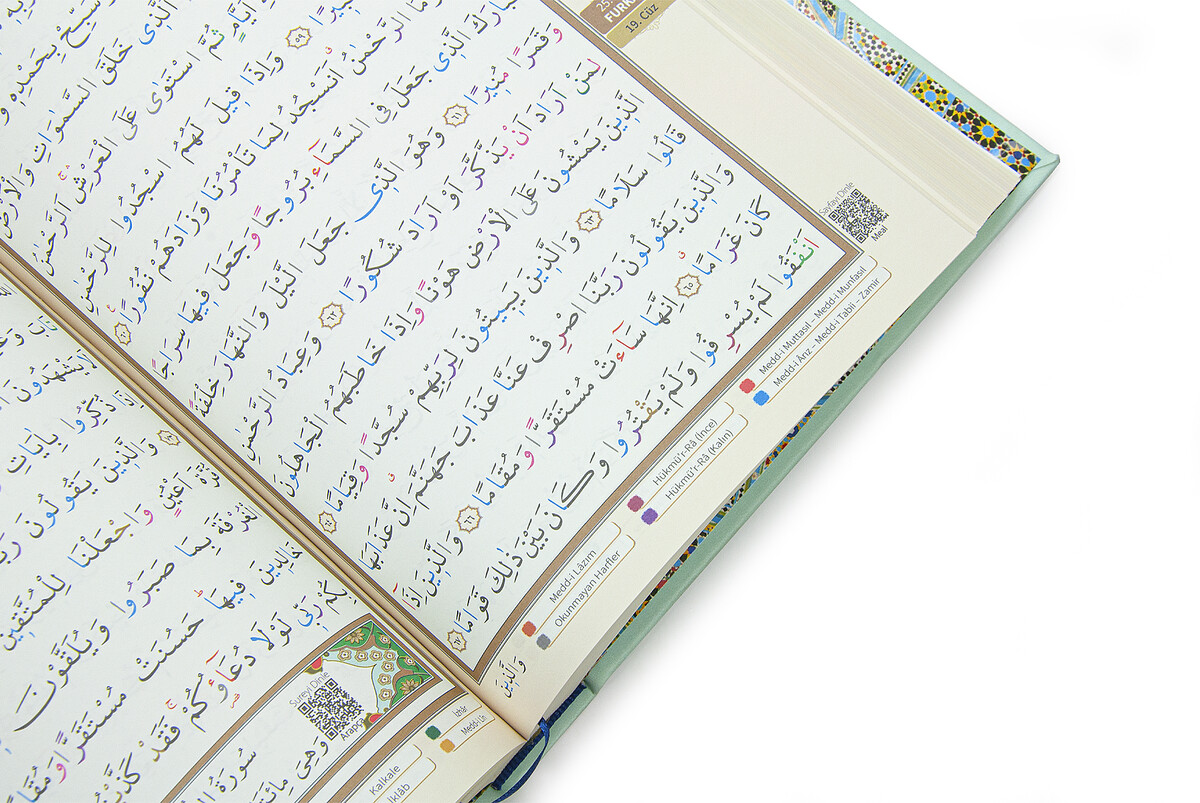 19. Cüz
سَبِّحْ بِحَمْدِهِ
الَّذِي خَلَقَ السَّمٰوَاتِ وَالْاَرْضَ
اَيَّامٍ ثُمَّ اسْتَوٰى عَلَى الْعَرْشِ اَلرَّحْمٰنُ
٥٩ وَاِذَا قِيلَ لَهُمُ اسْجُدُوا لِلرَّحْمٰنِ
وَمَا الرَّحْمٰنُ اَنَسْجُدُ لِمَا تَأْمُرُنَا وَزَادَهُمْ نُفُورًا ٦٠
الَّذِي جَعَلَ فِي السَّمَاءِ بُرُوجًا وَجَعَلَ فِيهَا سِرَاجًا
وَقَمَرًا مُنِيرًا ٦١ وَهُوَ الَّذِي جَعَلَ الَّيْلَ وَالنَّهَارَ خِلْفَةً
لِمَنْ اَرَادَ اَنْ يَذَّكَّرَ اَوْ اَرَادَ شُكُورًا ٦٢ وَعِبَادُ الرَّحْمٰنِ
الَّذِينَ يَمْشُونَ عَلَى الْاَرْضِ هَوْنًا وَاِذَا خَاطَبَهُمُ الْجَاهِلُونَ
قَالُوا سَلَامًا ٦٣ وَالَّذِينَ يَبِيتُونَ لِرَبِّهِمْ سُجَّدًا وَقِيَامًا ٦٤
وَالَّذِينَ يَقُولُونَ رَبَّنَا اصْرِفْ عَنَّا عَذَابَ جَهَنَّمَ اِنَّ عَذَابَهَا
كَانَ غَرَامًا ٦٥ اِنَّهَا سَاءَتْ مُسْتَقَرًّا وَمُقَامًا ٦٦ وَالَّذِينَ اِذَا
اَنْفَقُوا لَمْ يُسْرِفُوا وَلَمْ يَقْتُرُوا وَكَانَ بَيْنَ ذٰلِكَ قَوَامًا ٦٧
وَالَّذِينَ
Sayfayı Dinle
Meal
Medd-i Muttasıl - Medd-i Munfasıl
Medd-i Arız - Medd-i Tabii - Zamir
Hükmü'r-Râ (İnce)
Hükmü'r-Râ (Kalın)
Medd-i Lâzım
Okunmayan Harfler
لَا يَشْهَدُونَ
اِذَا ذُكِّرُوا بِاٰيَاتِ
وَالَّذِينَ يَقُولُونَ
قُرَّةَ اَعْيُنٍ وَاجْعَلْنَا لِلْمُتَّقِينَ
الْغُرْفَةَ بِمَا صَبَرُوا وَيُلَقَّوْنَ
خَالِدِينَ فِيهَا حَسُنَتْ مُسْتَقَرًّا وَمُقَامًا
بِكُمْ رَبِّي لَوْلَا دُعَاؤُكُمْ فَقَدْ
سُورَةُ
وَهِيَ
Sureyi Dinle
Arapça
İzhâr
Medd-i Lîn
Kalkale